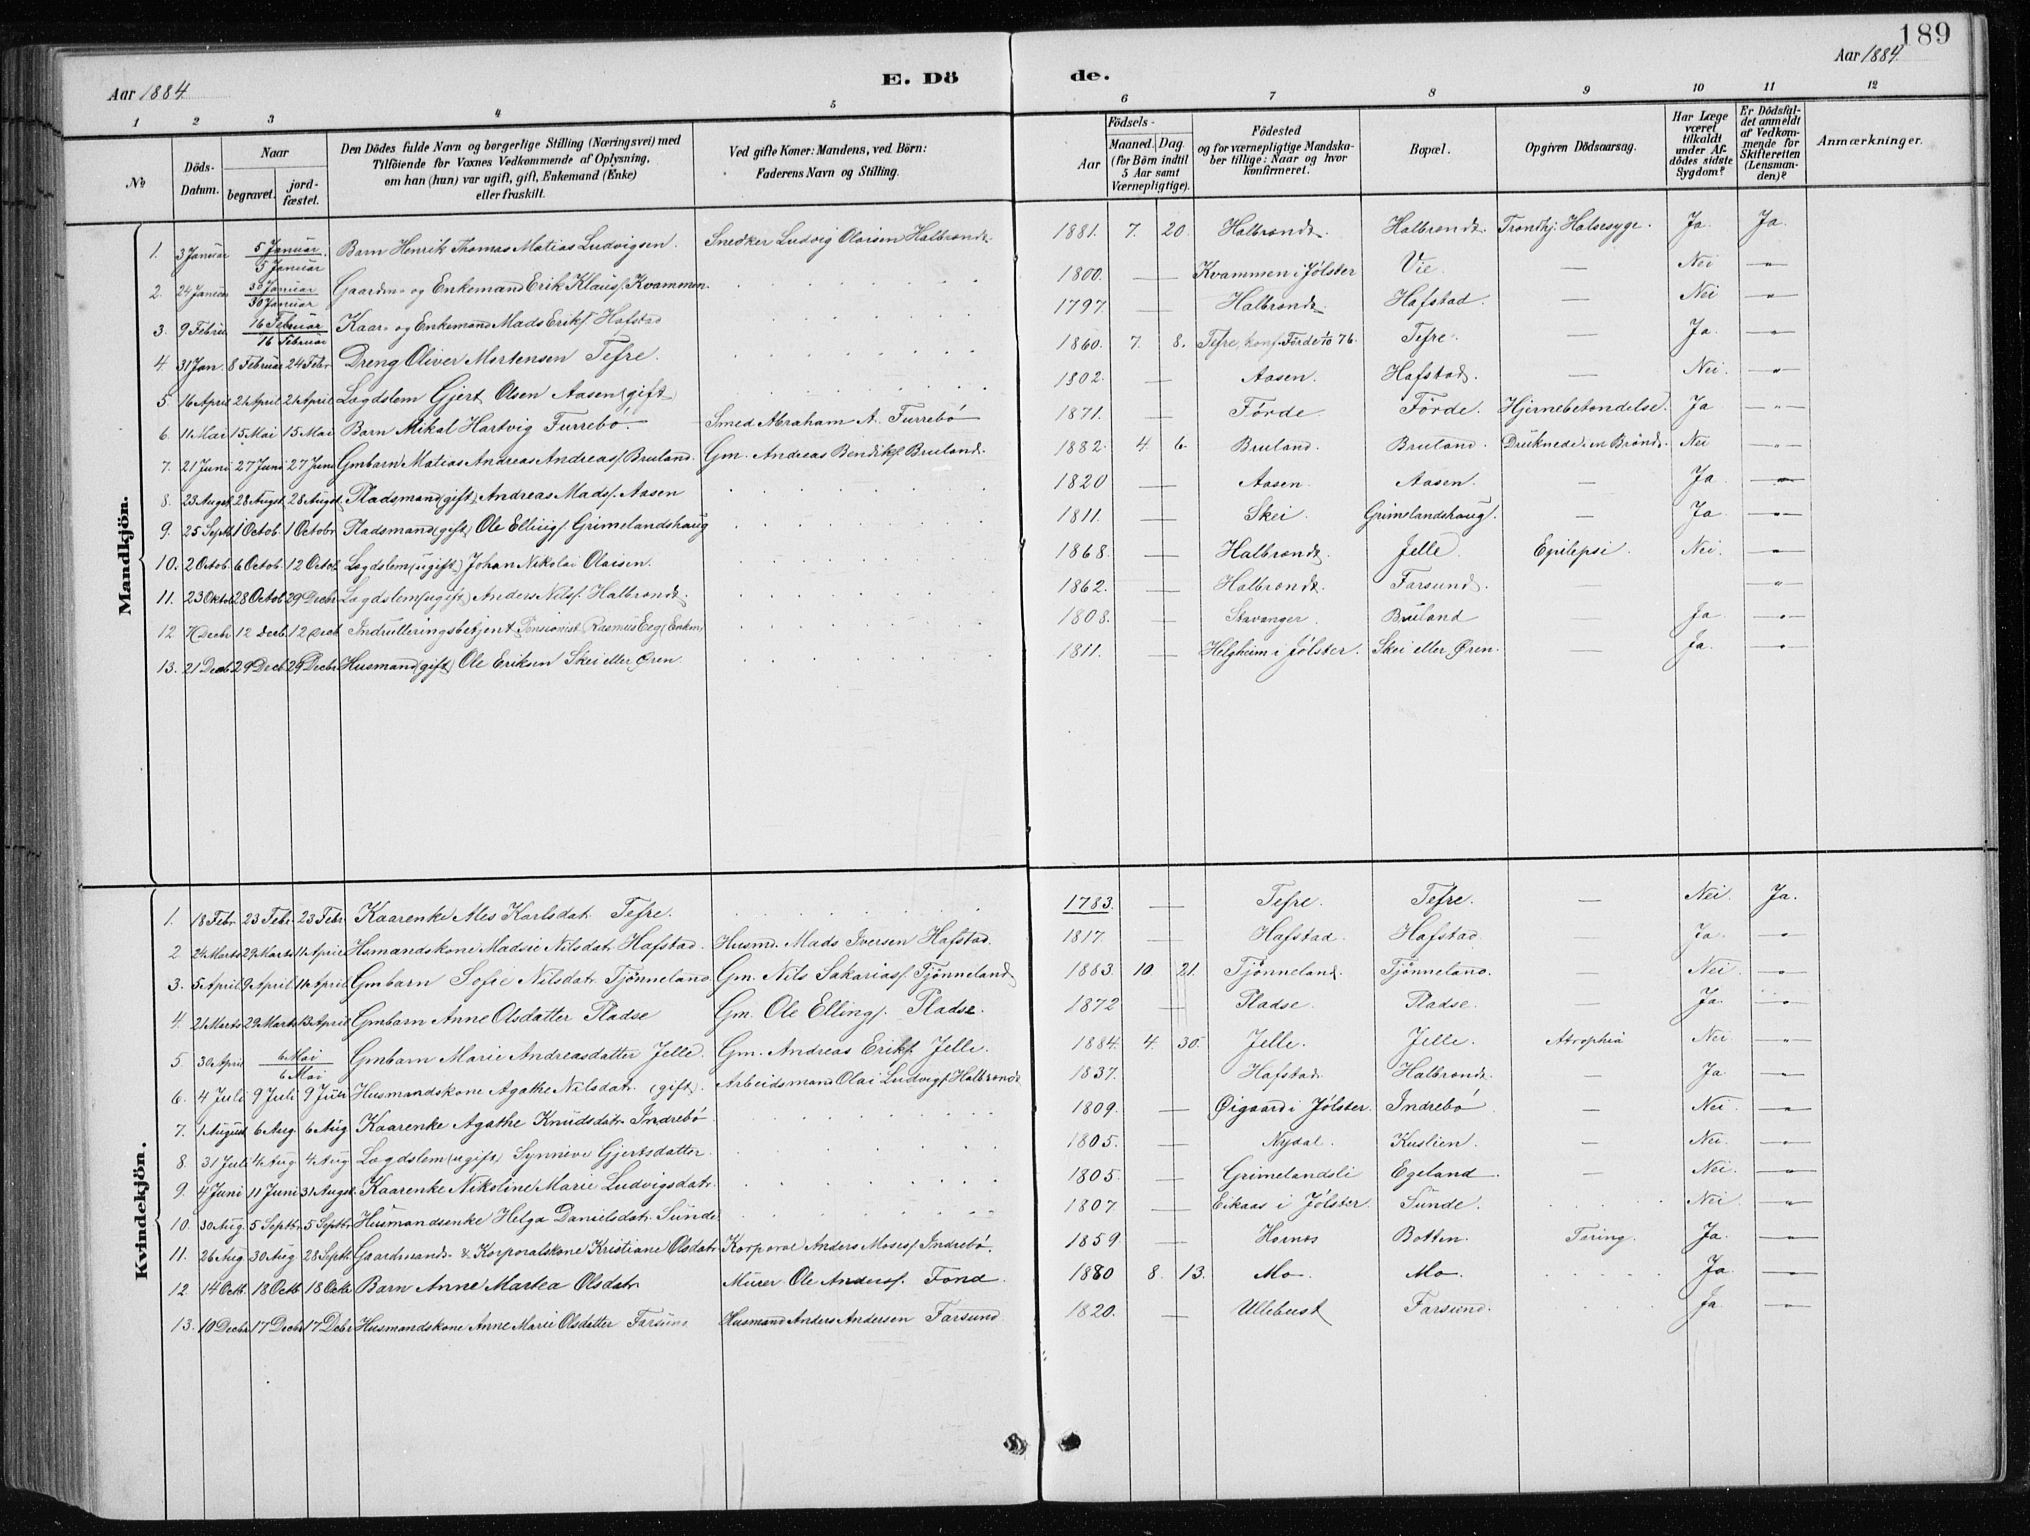 189
Aar 1884.
E. Dö
de.
Aar 1884.
1 2 3 4 5 6 7 8 9 10 11 12
No
Döds-Datum.
Naar
begravet.
jord-fæstet.
Den Dödes fulde Navn og borgerlige Stilling (Næringsvei) med
Tilföiende for Voxnes Vedkommende af Oplysning,
om han (hun) var ugift, gift, Enkemand (Enke)
eller fraskilt.
Ved gifte Koner: Mandens, ved Börn:
Faderens Navn og Stilling.
Födsels-
Aar
Maaned. Dag.
(for Börn indtil
5 Aar samt
Værnepligtige).
Födested
og for værnepligtige Mandska-
ber tillige: Naar og hvor
konfirmeret.
Bopæl.
Opgiven Dödsaarsag.
Har Læge
været
tilkaldt
under Af-
dödes sidste
Sygdom?
Er Dödsfal-
det anmeldt
af Vedkom-
mende for
Skifteretten
(Lensman-
den)?
Anmærkninger.
Mandkjön.
1. 3 Januar 5 Januar 5 Januar Barn Henrik Thomas Matias Ludvigsen. Snedker Ludvig Olaisen Halbrendt 1881. 7. 20. Halbrendt. Halbrendt. Trondhj. Halsesyge. Ja Ja.
2. 24 Januar 30 Januar 30 Januar Gaardm- og Enkemand Erik Klaus. Kvammen. 1800. — Kvammen i Jølster Vie. — Nei "
3. 9 Februar 16 Februar 16 Februar Kaar- og Enkemand Mads Eriks. Hafstad 1797. — Halbrendt Hafstad. — Nei "
4. 31 Jan. 8 Februar 24 Febr. Dreng Oliver Mortensen Tefre. 1860. 7. 8. Tefre, konf. Förde 1/10 76. Tefre. — Ja. "
5. 16 April 21 April 21 April Lægdslem Gjert Olsen Aasen (gift) 1802. — Aasen. Hafstad. — Nei. "
6. 11 Mai 15 Mai 15 Mai Barn Mikal Hartvig Furrebö. Smed Abraham A. Furrebö 1871. — Förde Förde. Hjernebetændelse. Ja "
7. 21 Juni 27 Juni 27 Juni Gmbarn Matias Andreas Andreas. Bruland. Gm. Andreas Bendiks. Bruland. 1882. 4 6. Bruland. Bruland. Druknede i en Brönd. Nei "
8. 23 Augst. 28 Augst. 28 Augst. Pladsmand (gift) Andreas Mads. Aasen 1820 — Aasen. Aasen. — Ja "
9. 25 Septb. 1 Octob. 1 Octobr. Pladsmand (gift) Ole Ellings. Grimelandshaug 1811. — Skei. Grimelandshaug. — Ja "
10. 2 Octob. 6 Octob. 12 Octob. Lægdslem (ugift) Johan Nikolai Olaisen. 1868. — Halbrendt. Jelle. Epilepsi. Nei. "
11. 23 Oktob. 28 Octob. 29 Decbr. Lægdslem (ugift) Anders Nils. Halbrendt. 1862. — Halbrendt. Farsund. — "
12 7 Decbr 12 Decb. 12 Decb Indrulleringsbetjent Pensionist Rasmus Eeg (Enkm) 1808. — Stavanger. Bruland — Ja "
13. 21 Decb. 29 Decb. 29 Decbr. Husmand (gift) Ole Eriksen Skei eller Øren. 1811. — Helgheim i Jølster. Skei eller Øren. — Ja. "
Kvindekjön.
1. 18 Febr. 23 Febr. 23 Febr. Kaarenke Ales Karlsdat. Tefre. 1783. — Tefre. Tefre. — Nei. Ja.
2 24 Marts 29 Marts 14 April Husmandskone Madsie Nilsdat. Hafstad. Husmd. Mads Iversen Hafstad. 1817. — Hafstad. Hafstad. — Ja "
3. 5 April 9 April 14 April Gmbarn Sofie Nilsdatr Tjönneland Gm. Nils Sakarias. Tjönneland 1883. 10. 21. Tjönneland. Tjönneland. — Nei. "
4. 21 Marts 29 Marts 13 April Gmbarn Anne Olsdatter Pladse Gm. Ole Elling. Pladse. 1872 — Pladse. Pladse. — Ja. "
5 30 April 6 Mai 6 Mai Gmbarn Marie Andreasdatter Jelle. Gm. Andreas Eriks. Jelle. 1884. 4. 30. Jelle. Jelle. Atrophia Nei "
6. 4 Juli 9 Juli 9 Juli Husmandskone Agathe Nilsdat. (gift). Arbeidsmand Olai Ludvigs. Halbrendt 1837. — Hafstad. Halbrendt. — Ja "
7. 1 August 6 Aug. 6 Aug. Kaarenke Agathe Knudsdatr. Indrebö 1809. — Øigaard i Jølster. Indrebö. — Nei. "
8. 31 Juli 4 Aug 4 Aug Lægdslem (ugift) Synneve Gjertsdatter. 1805. — Nydal. Kuslien. — Nei. "
9. 4 Juni 11 Juni 31 Augst. Kaarenke Nikoline Marie Ludvigsdatr. 1805. — Grimelandsli Egeland — Nei. "
10. 30 Aug. 5 Septbr. 5 Septbr Husmandsenke Helga Danielsdat. Sunde 1807. — Eikaas i Jølster. Sunde. Nei "
11. 26 Aug. 30 Aug 28 Septb. Gaardmands- & Korporalskone Kristiane Olsdatr. Korporal Anders Moses. Indrebö. 1859 — Hornes Botten. Tæring. Ja. "
12 14 Octb. 18 Octb 18 Octb. Barn Anne Martea Olsdatr. Murer Ole Anders. Fond 1880 8. 13. Mo. Mo. Ja "
13. 10 Decbr 17 Decbr 17 Dcbr. Husmandskone Anne Marie Olsdatter Farsund Husmand Anders Andersen Farsund. 1820. — Ullebust Farsund. Ja "